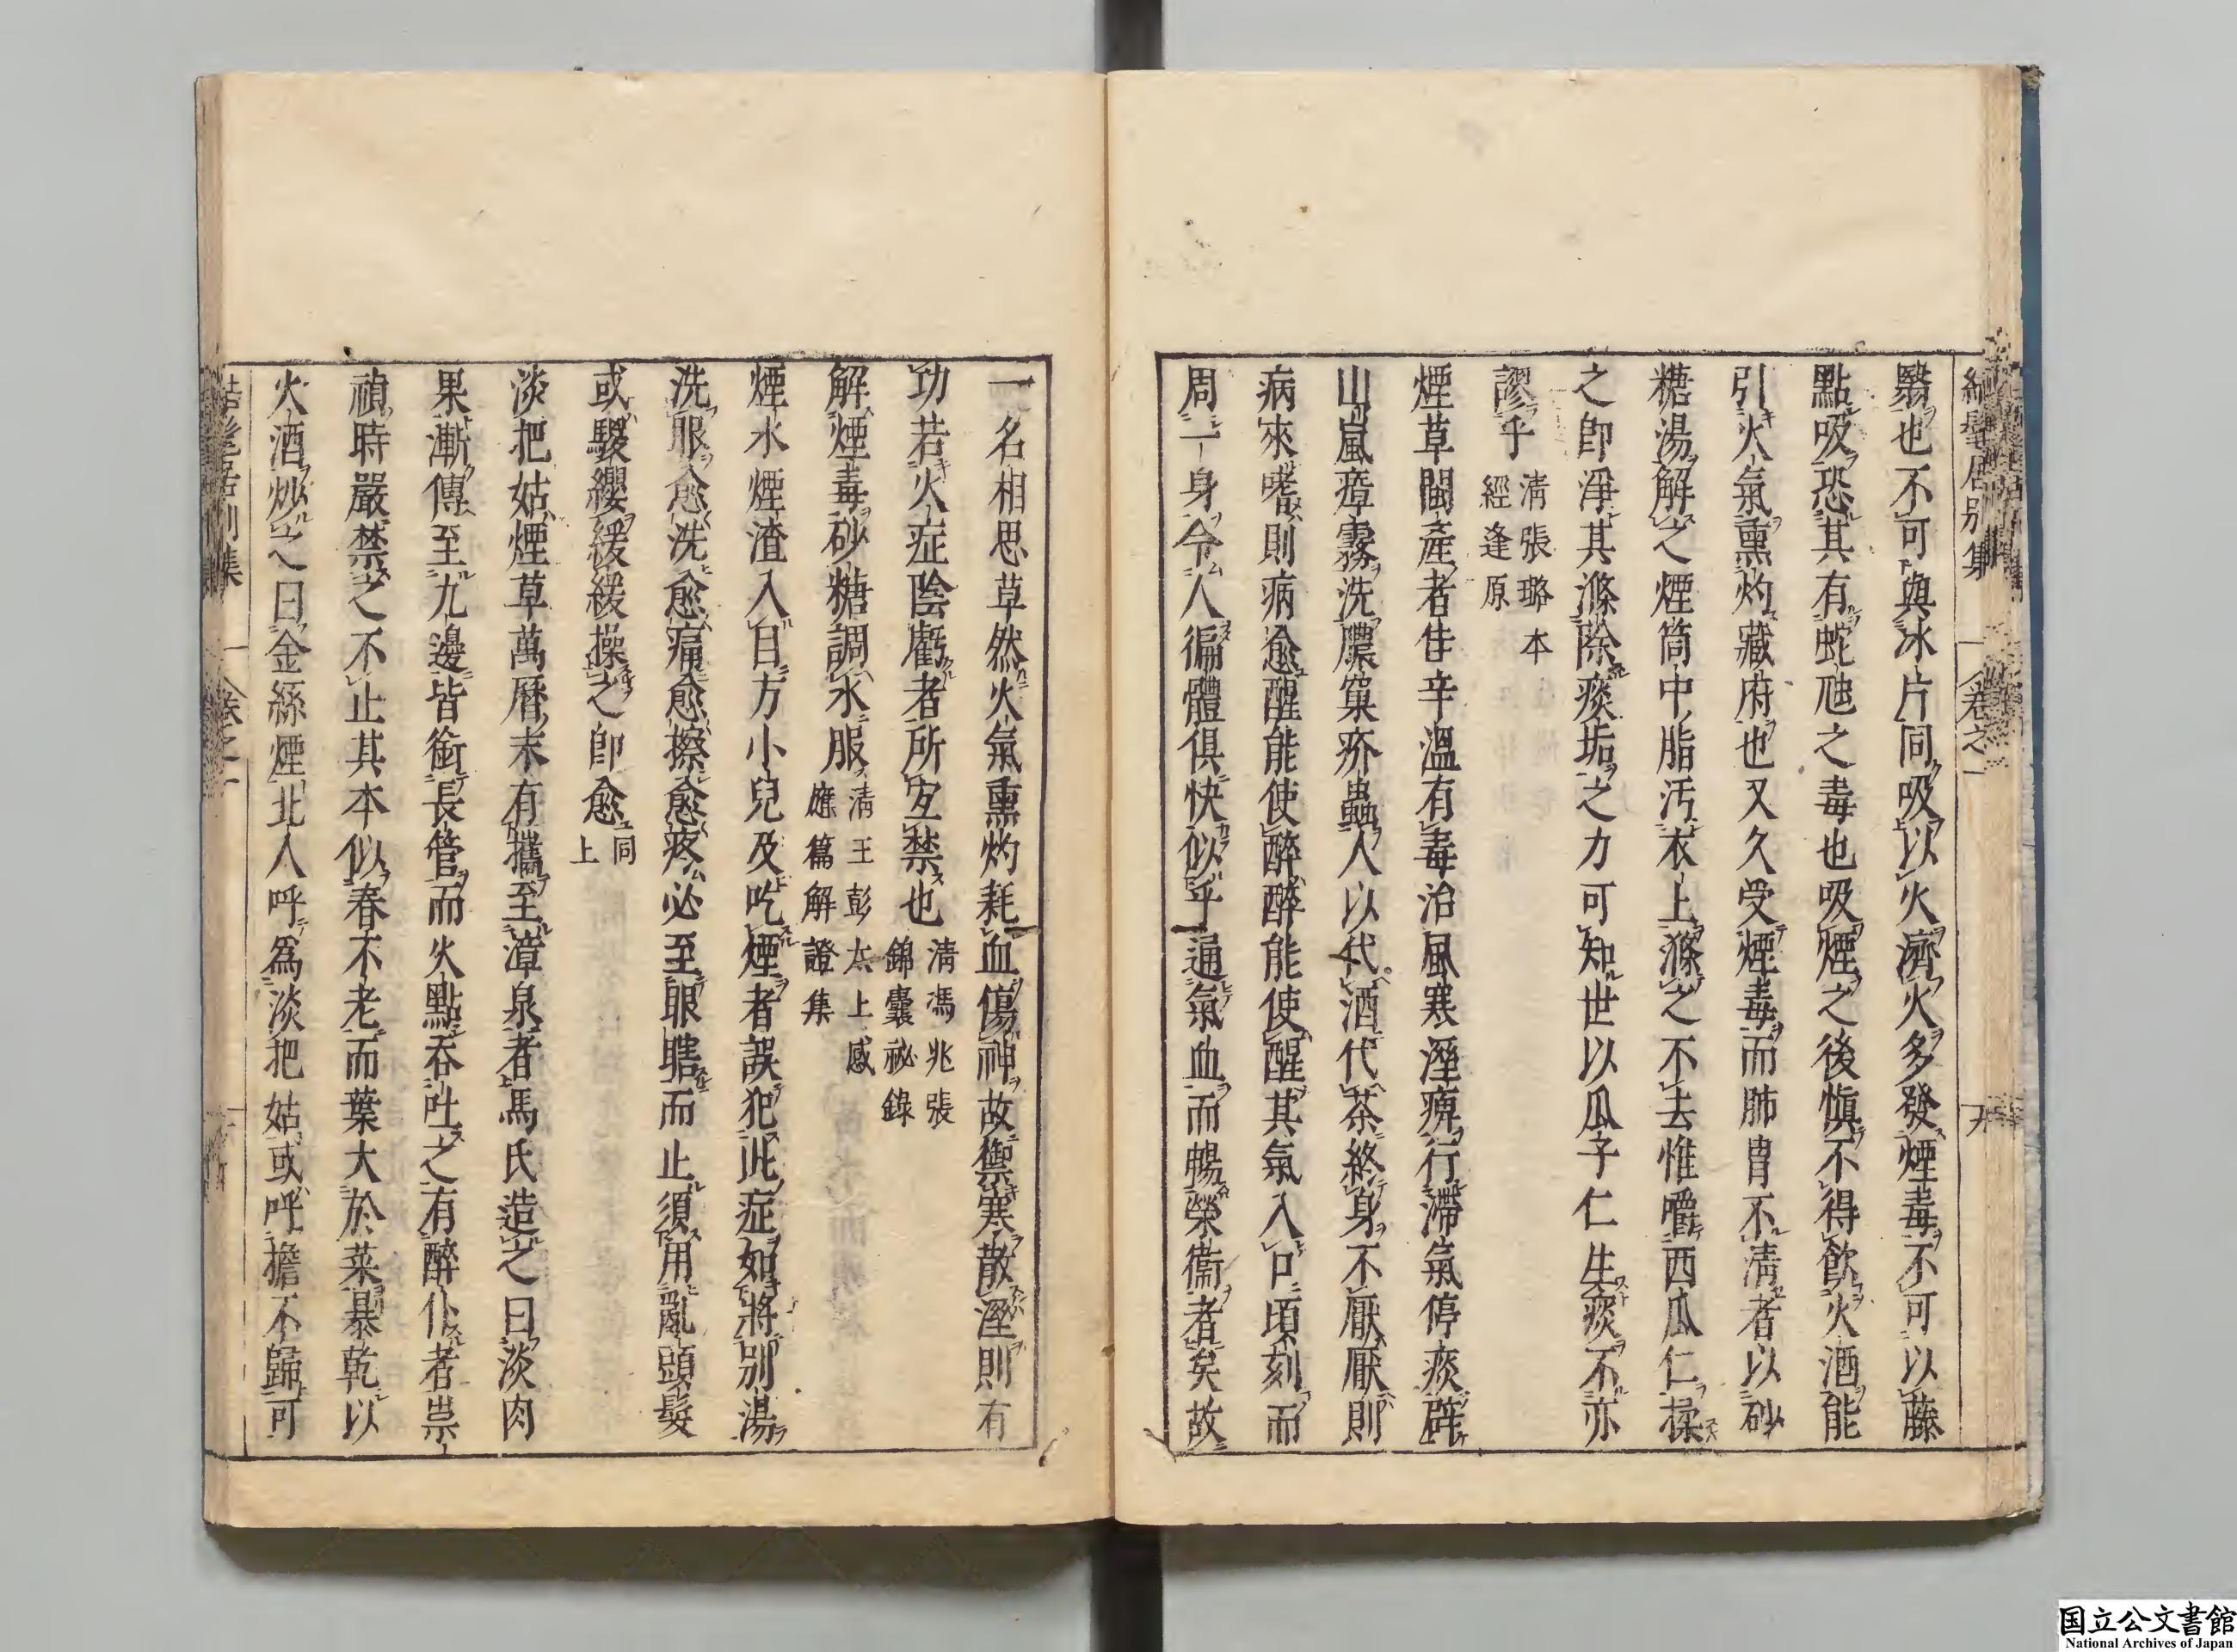 結髦居別集 卷之一 九
翳也不可與冰片同吸以火濟火多發煙毒不可以藤
點吸恐其有蛇虺之毒也吸煙之後愼不得飮火酒能
引火氣熏灼藏府也又久受煙毒而肺胃不淸者以砂
糖湯解之煙筒中脂汚衣上滌之不去惟嚼西瓜仁揉
之卽淨其滌除痰垢之力可知世以瓜子仁生痰不亦
謬乎淸張璐本
經逢原
煙草閩產者甘辛溫有毒治風寒溼痺行滯氣停痰辟
山嵐瘴霧洗膿窠疥蟲人以代酒代茶終身不厭厭則
病來嗜則病愈醒能使醉醉能使醒其氣入口頃刻而
周一身令人徧體俱快似乎通氣血而暢榮衞者矣故
一名相思草然火氣熏灼耗血傷神故禦寒散溼則有
功若火症陰虧者所宜禁也淸馮兆張
錦囊祕錄
解煙毒砂糖調水服淸王彭太上感
應篇解證集
煙水煙渣入目方小兒及吃煙者誤犯此症如將別湯
洗服愈洗愈痛愈擦愈疼必至眼瞎而止須用亂頭髮
或騣纓緩緩操之卽愈同
上
淡把姑煙草萬曆末有攜至漳泉者馬氏造之曰淡肉
果漸傳至九邊皆銜長管而火點吞吐之有醉仆者崇
禎時嚴禁之不止其本似春不老而葉大於菜暴乾以
火酒炒之曰金絲煙北人呼爲淡把姑或呼擔不歸可
結髦居別集 卷之一
国立公文書館
National Archives of Japan